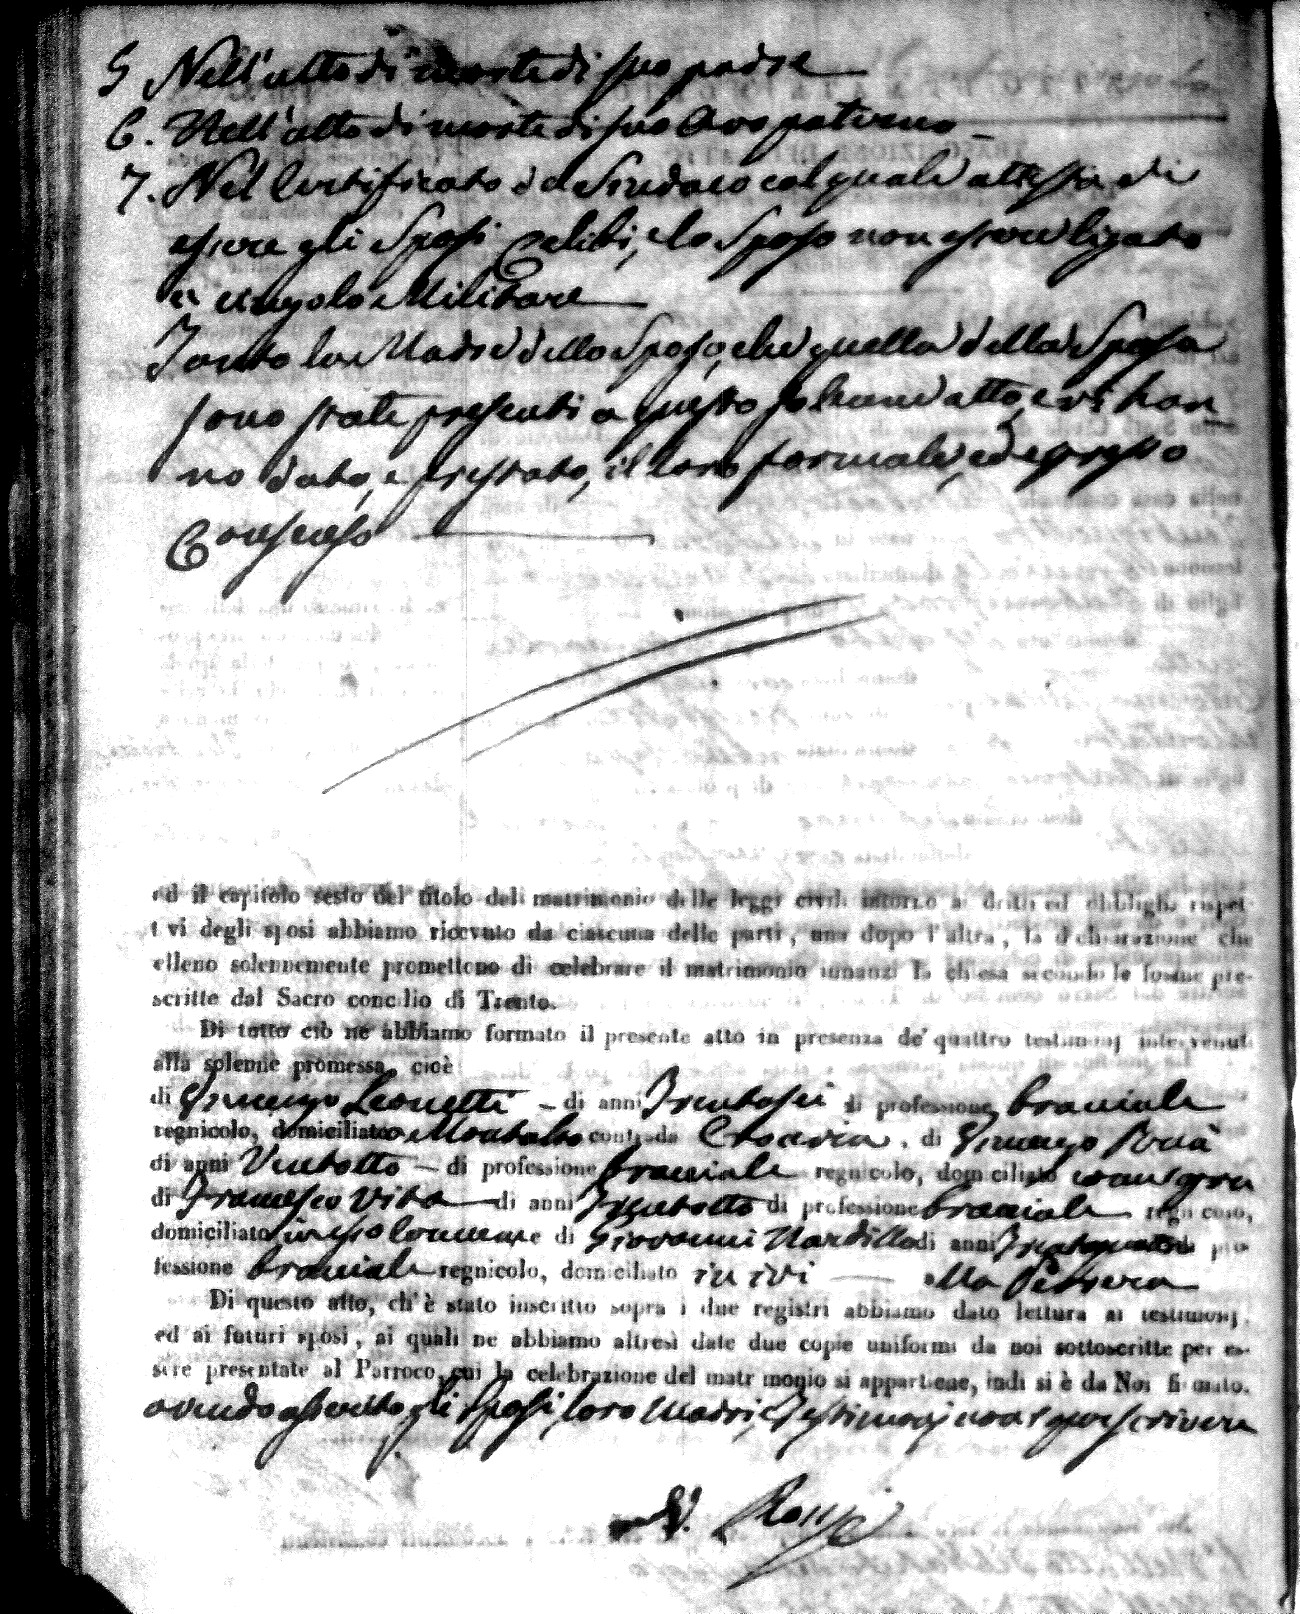 5 Nell'atto di morte di suo padre
6. Nell'atto di morte di suo Avo paterno
7. Nel Certificato del Sindaco col quale attesta di
essere gli Sposi Celibi, e lo Sposo non essere ligato
a cingolo Militare
Tanto la Madre dello Sposo, che quella della Sposa
sono state presenti a questo solenne atto, e vi han-
no dato, e prestato, il loro formale, ed espresso
Consenso
ed il capitolo sesto del titolo del matrimonio delle leggi civili intorno ai dritti ed obblighi rispet
t vi degli sposi abbiamo ricevuto da ciascuna delle parti, una dopo l'altra, la dichiarazione che
elleno solennemente promettono di celebrare il matrimonio innanzi la chiesa secondo le forme pre-
scritte dal Sacro concilio di Trento.
Di tutto ciò ne abbiamo formato il presente atto in presenza de' quattro testimonj intervenuti
alla solenne promessa, cioè
di Leonetti di anni Trentasei di professione bracciale
regnicolo, domiciliato Montalto contrada di
di anni Ventotto di professione bracciale regnicolo, domiciliato
di Francesco Vita di anni Trentotto di professione bracciale regnicolo,
domiciliato in e di Giovanni Nardillo di anni di pro
fessione bracciale regnicolo, domiciliato in ivi alla
Di questo atto, ch'è stato inscritto sopra i due registri abbiamo dato lettura ai testimonj,
ed ai futuri sposi, ai quali ne abbiamo altresì date due copie uniformi da noi sottoscritte per es-
sere presentate al Parroco, cui la celebrazione del matrimonio si appartiene, indi si è da Noi firmato.
avendo asserito gli Sposi, loro Madri, e Testimonj non saper scrivere